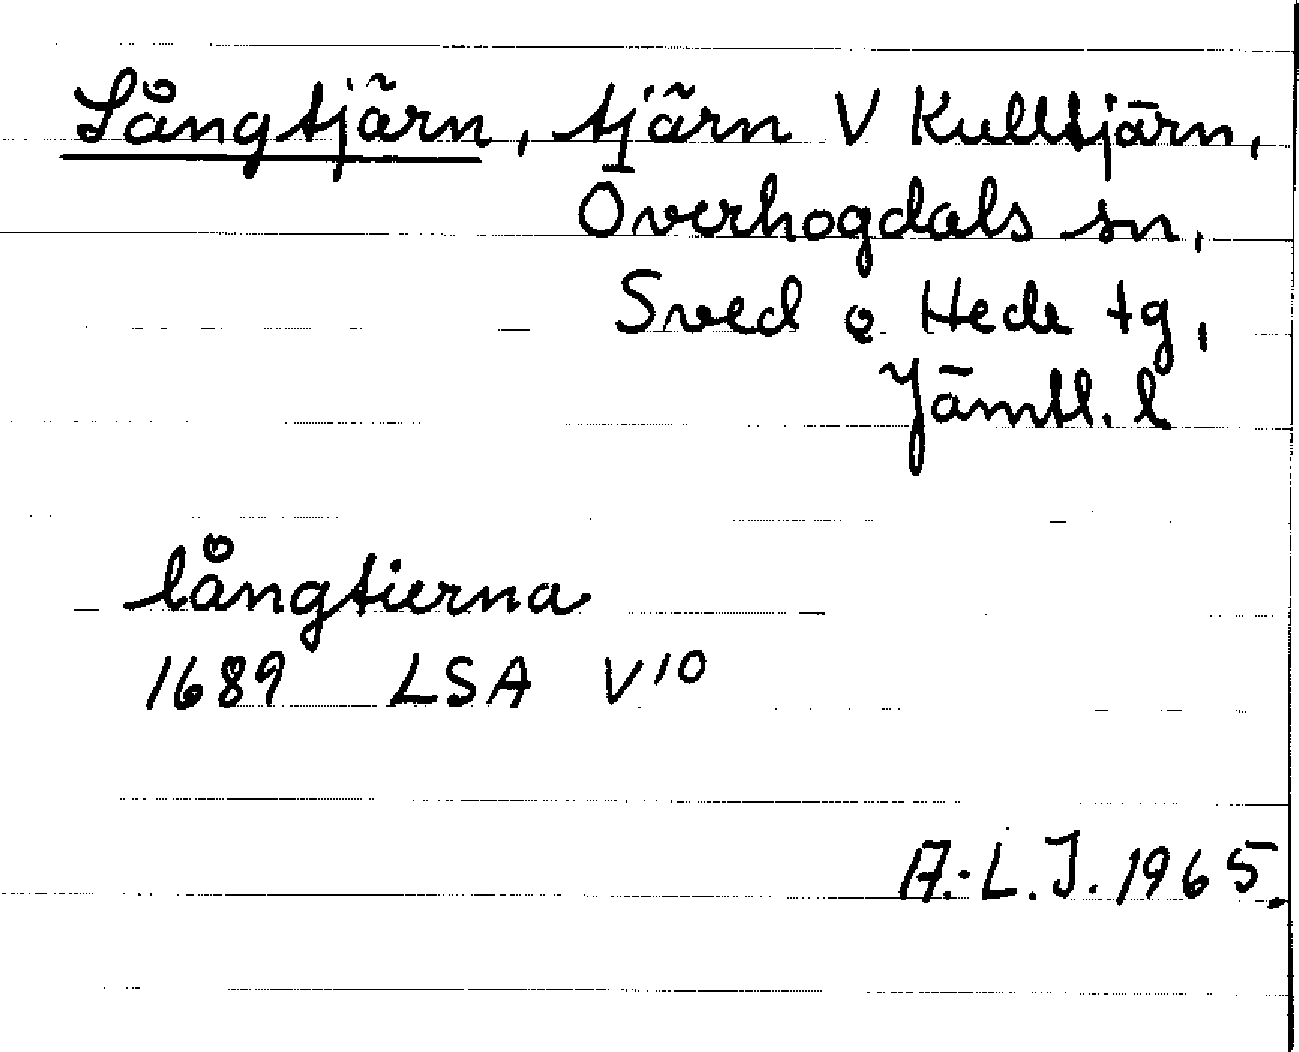 Långtjärn, tjärn V Kulltjärn,
Överhogdals sn,
Sved o Hede tg,
Jämtl. l
långtierna
1689 LSA V10
A.-L. J. 1965.